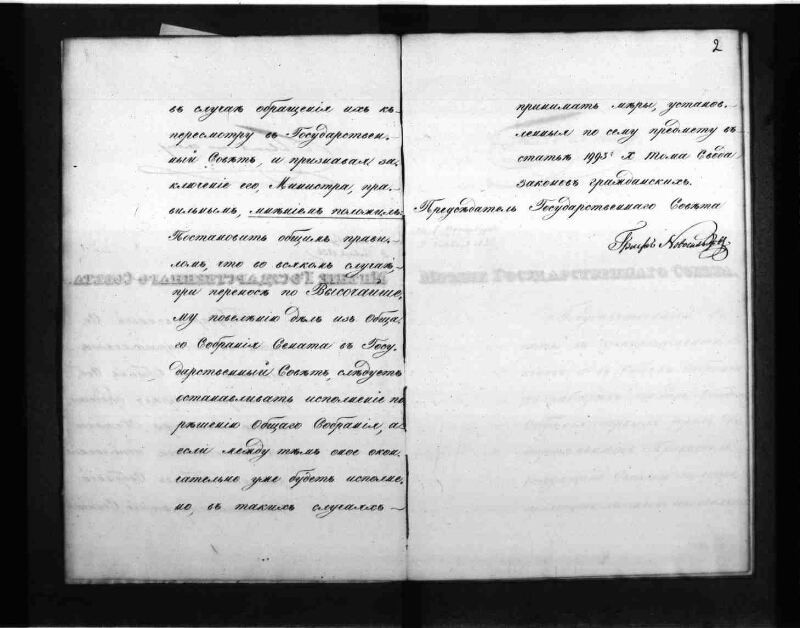 въ случаѣ обращенія ихъ къ
пересмотру въ Государствен-
ный Совѣтъ, и признавая за-
ключеніе его, Министра, пра-
вильнымъ, мнѣніемъ положилъ:
Постановить общимъ прави-
ломъ, что во всякомъ случаѣ
при переносѣ по Высочайше-
му повелѣнію дѣлъ изъ Обща-
го Собранія Сената въ Госу-
дарственный Совѣтъ, слѣдуетъ
останавливать исполненіе по
рѣшенію Общаго Собранія, а
если между тѣмъ оное окон-
чательно уже будетъ исполне-
но, въ такихъ случаяхъ
2
принимать мѣры, установ-
ленныя по сему предмету въ
статьѣ X тома Свода
законовъ гражданскихъ.
Предсѣдатель Государственнаго Совѣта
Графъ Новосильцовъ
Мнѣніе Государственнаго Совѣта.